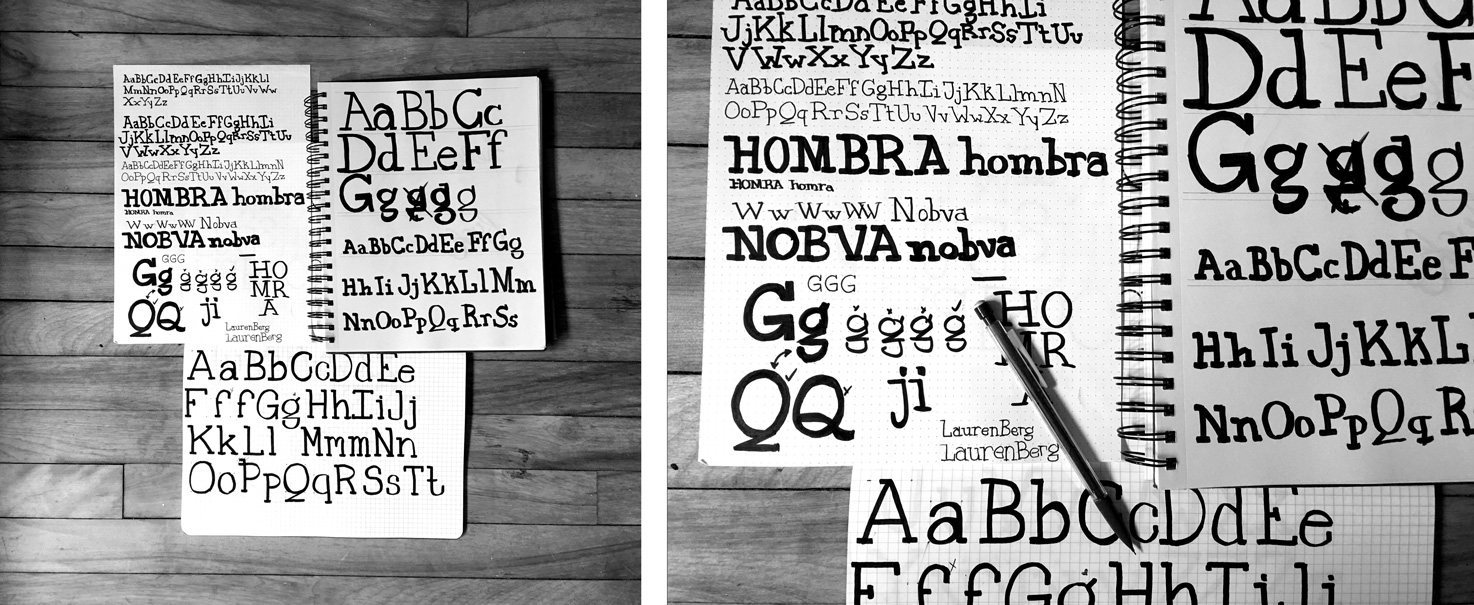 AaBbCcDdEeFfGgHhIiJjKkLl
MmNnOoPpQqRrSsTtUuVvWw
XxYyZz
AaBbCcDdEeFfGgHhIi
JjKkLlmnOoPpQqRrSsTtUu
VvWwXxYyZz
AaBbCcDdEeFfGgHhIiJjKkLlmnN
OoPpQqRrSsTtUuVvWwXxYyZz
HOMBRA hombra
HOMRA homra
WwWwWW Nobva
NOBVA nobva
GGG
Gg ġ ğ ğ ğ
HO
MR
A
QQ ji
LaurenBerg
LaurenBerg
AaBbCc
DdEeFf
Gg g g g
AaBbCcDdEeFfGg
HhIiJjKkLlMm
NnOoPpQqRrSs
AaBbCcDdEe
FffGgHhIiJj
KkLl MmmNn
OoPpQqRSsTt
AaBbCcDdEeFfGgHhIi
JjKkLlmnOoPpQqRrSsTtUu
VWwXxYyZz
AaBbCcDdEeFfGgHhIiJjKkLlmnN
OoPpQqRrSsTtUuVvWwXxYyZz
HOMBRA hombra
HOMRA homra
WwWwWW Nobva
NOBVA nobva
GGG
Gg ġ ğ ğ ğ
HO
MR
QQ ji
LaurenBerg
LaurenBerg
DdEeF
Gg g g g
AaBbCcDdEeF
HhIiJjKkL
NnOoPpQqR
AaBbCcDdEe
FffGgHhIiJj